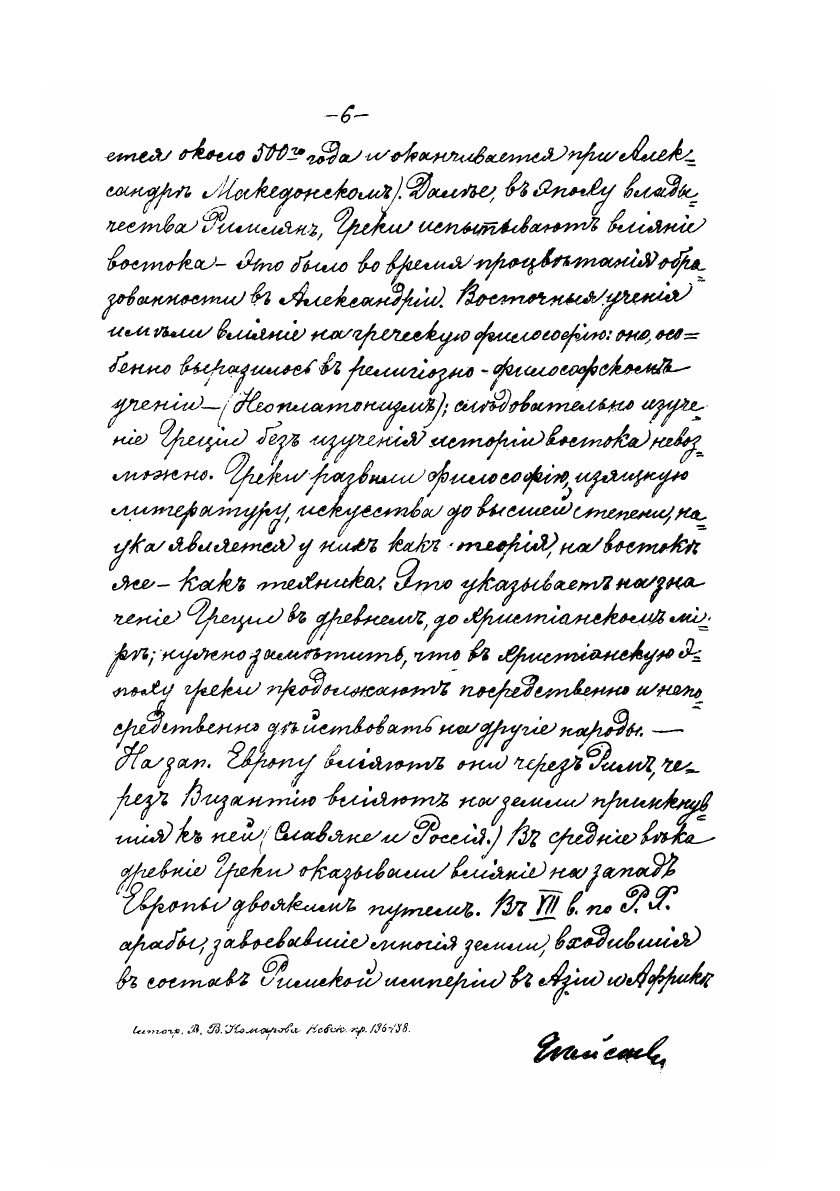 —6—
ется около 500го года и оканчивается при Алек=
сандрѣ Македонскомъ). Далѣе, въ эпоху влады=
чества Римлянъ, Греки испытываютъ вліяніе
востока — Это было во время процвѣтанія обра=
зованности въ Александріи. Восточныя ученія
имѣли вліяніе на греческую философію: оно, осо=
бенно выразилось въ религіозно-философскомъ
ученіи — (Неоплатонизмъ); слѣдовательно изуче=
ніе Греціи безъ изученія исторіи востока невоз=
можно. Греки развили философію, изящную
литературу, искусства до высшей степени, на=
ука является у нихъ какъ теорія, на востокѣ
же — какъ техника. Это указываетъ на зна
ченіе Греціи въ древнемъ, до христіанскомъ мі=
рѣ; нужно замѣтить, что въ христіанскую э=
поху греки продолжаютъ посредственно и непо=
средственно дѣйствовать на другіе народы. —
На зап. Европу вліяютъ они черезъ Римъ, че=
резъ Византію вліяютъ на земли примкнув=
шія къ ней (Славяне и Россія.) Въ средніе вѣка
древніе Греки оказывали вліяніе на западъ
Европы двоякимъ путемъ. Въ VII в. по Р. Х.
арабы, завоевавшіе многія земли, входившія
въ составъ Римской имперіи въ Азіи и Африкѣ
Литогр. В. Комарова Невск. пр. 136-138.